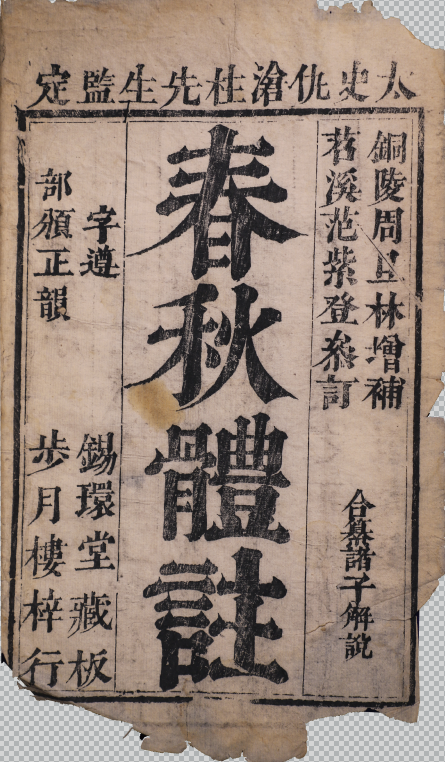 太史仇滄柱先生監定
銅陵周旦林增補
苕溪范紫登叅訂
合纂諸子解說
春秋體註
字遵
部頒正韻
錫環堂藏板
步月樓梓行